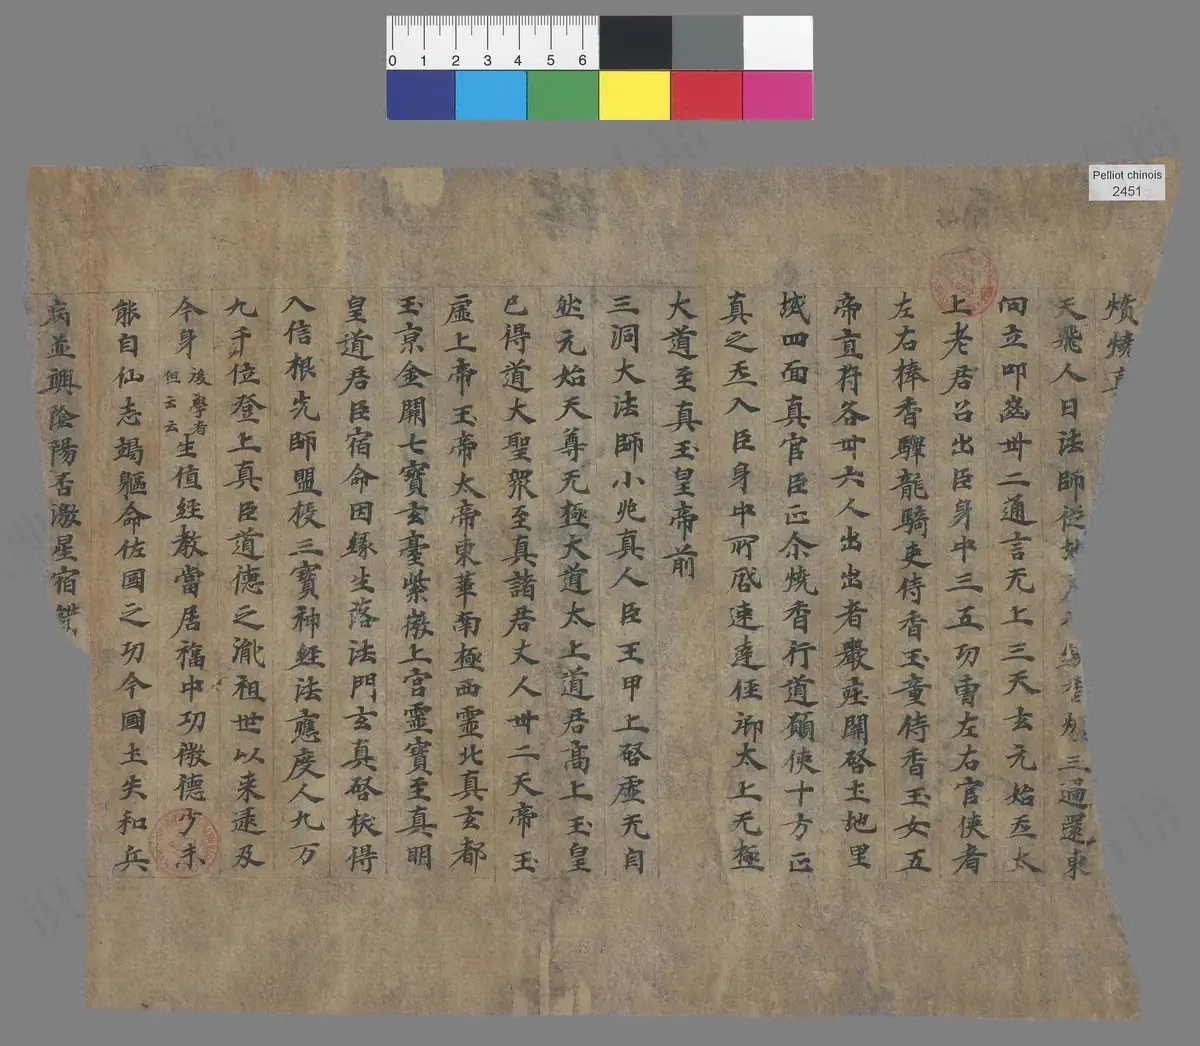 0 1 2 3 4 5 6
Pelliot chinois
2451
燌燒真
天飛人曰法師從 三過還東
向立叩齒卅二通言无上三天玄元始炁太
上老君召出臣身中三五功曹左右官使者
左右捧香驛龍騎吏侍香玉童侍香玉女五
帝直符各卅六人出出者嚴庄關啓土地里
域四面真官臣正尒燒香行道願使十方正
真之炁入臣身中所啓速達徑御太上无極
大道至真玉皇帝前
三洞大法師小兆真人臣王甲上啓虛无自
然元始天尊无極大道太上道君高上玉皇
已得道大聖衆至真諸君丈人卅二天帝玉
虛上帝玉帝太帝東華南極西靈北真玄都
玉京金闕七寶玄臺紫微上宮靈寶至真明
皇道君臣宿命因緣生落法門玄真啓拔得
入信根先師盟授三寶神經法應度人九万
九千位登上真臣道德之胤祖世以来逮及
今身後學者但云云生值經教當居福中功微德少未
能自仙志竭軀命佐国之功今國土失和兵
病並興陰陽否激星宿